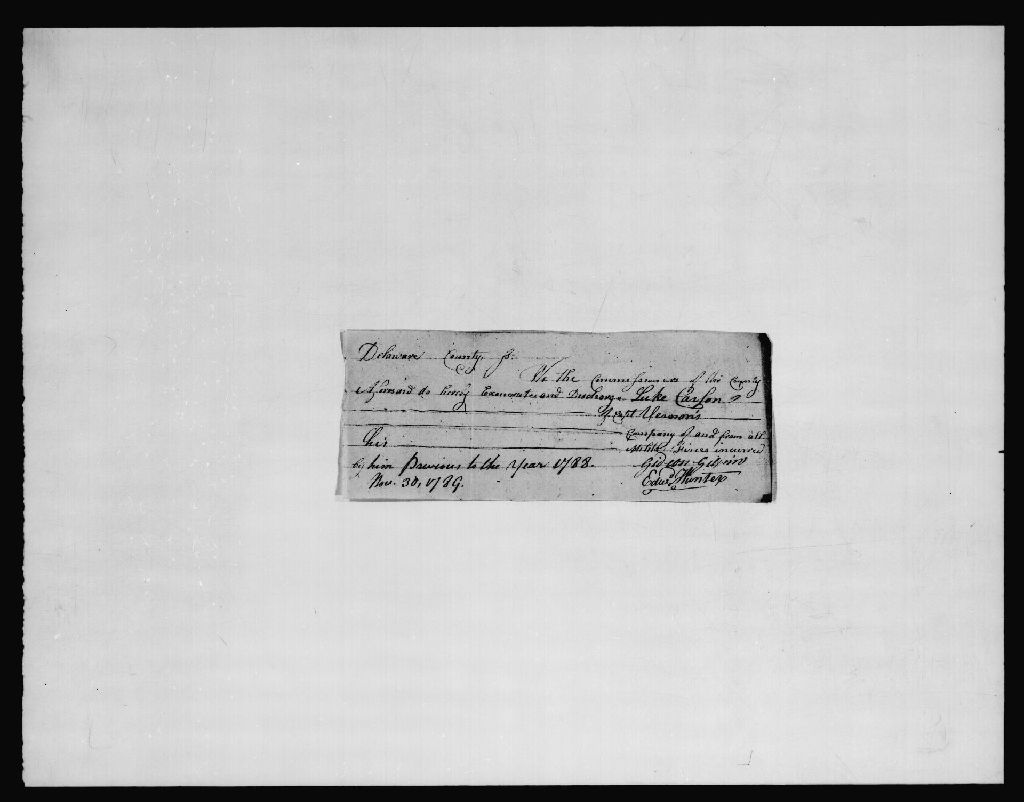 Delaware County, ss.
We the Commissioners of the County
Aforesaid do hereby Exonerate and Discharge Luke Carson
Of Capt Vernon's
Company of and from all
his Militia Fines incurred
by him Previous to the Year 1788.
Nov. 30, 1789.
Gideon Gilpin
Edwd Hunter